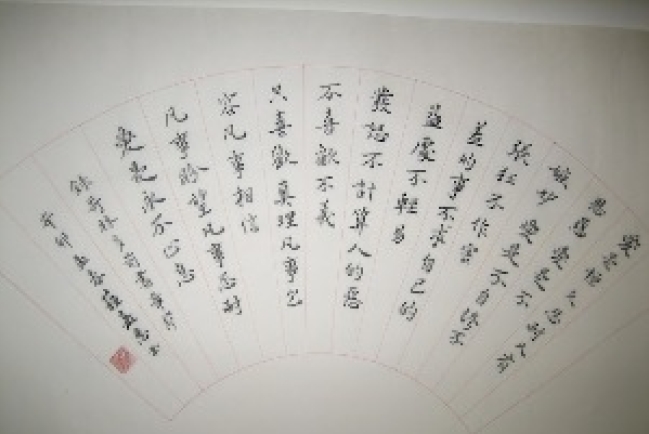 愛是恆久忍耐又有
恩慈愛是不
嫉妒愛是不自誇不
張狂不作害
羞的事不求自己的
益處不輕易
發怒不計算人的惡
不喜歡不義
只喜歡真理凡事包
容凡事相信
凡事盼望凡事忍耐
愛是永不止息
錄哥林多前書章
辛卯孟春